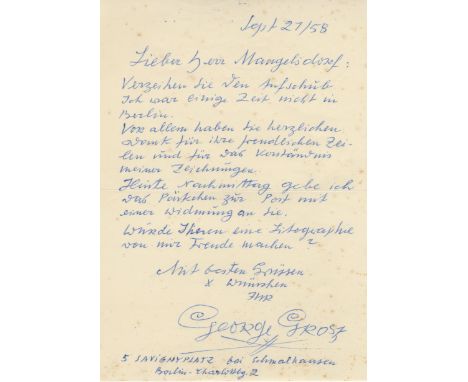 Sept 27/58
Lieber Herr Mangelsdorf:
Verzeihen Sie den Aufschub
Ich war einige Zeit nicht in
Berlin.
Vor allem haben Sie herzlichen
Dank für ihre freundlichen Zei-
len und für das Verständnis
meiner Zeichnungen.
Heute Nachmittag gebe ich
das Päckchen zur Post mit
einer Widmung an Sie.
Würde Ihnen eine Litographie
von mir Freude machen?
Mit besten Grüssen
x Wünschen
Ihr
George Grosz
5 SAVIGNYPLATZ bei Schmalhausen
Berlin-Charlottbg. 2